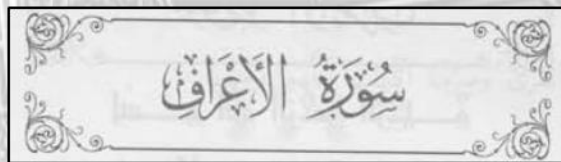 سُورَةُ الْأَعْرَافِ